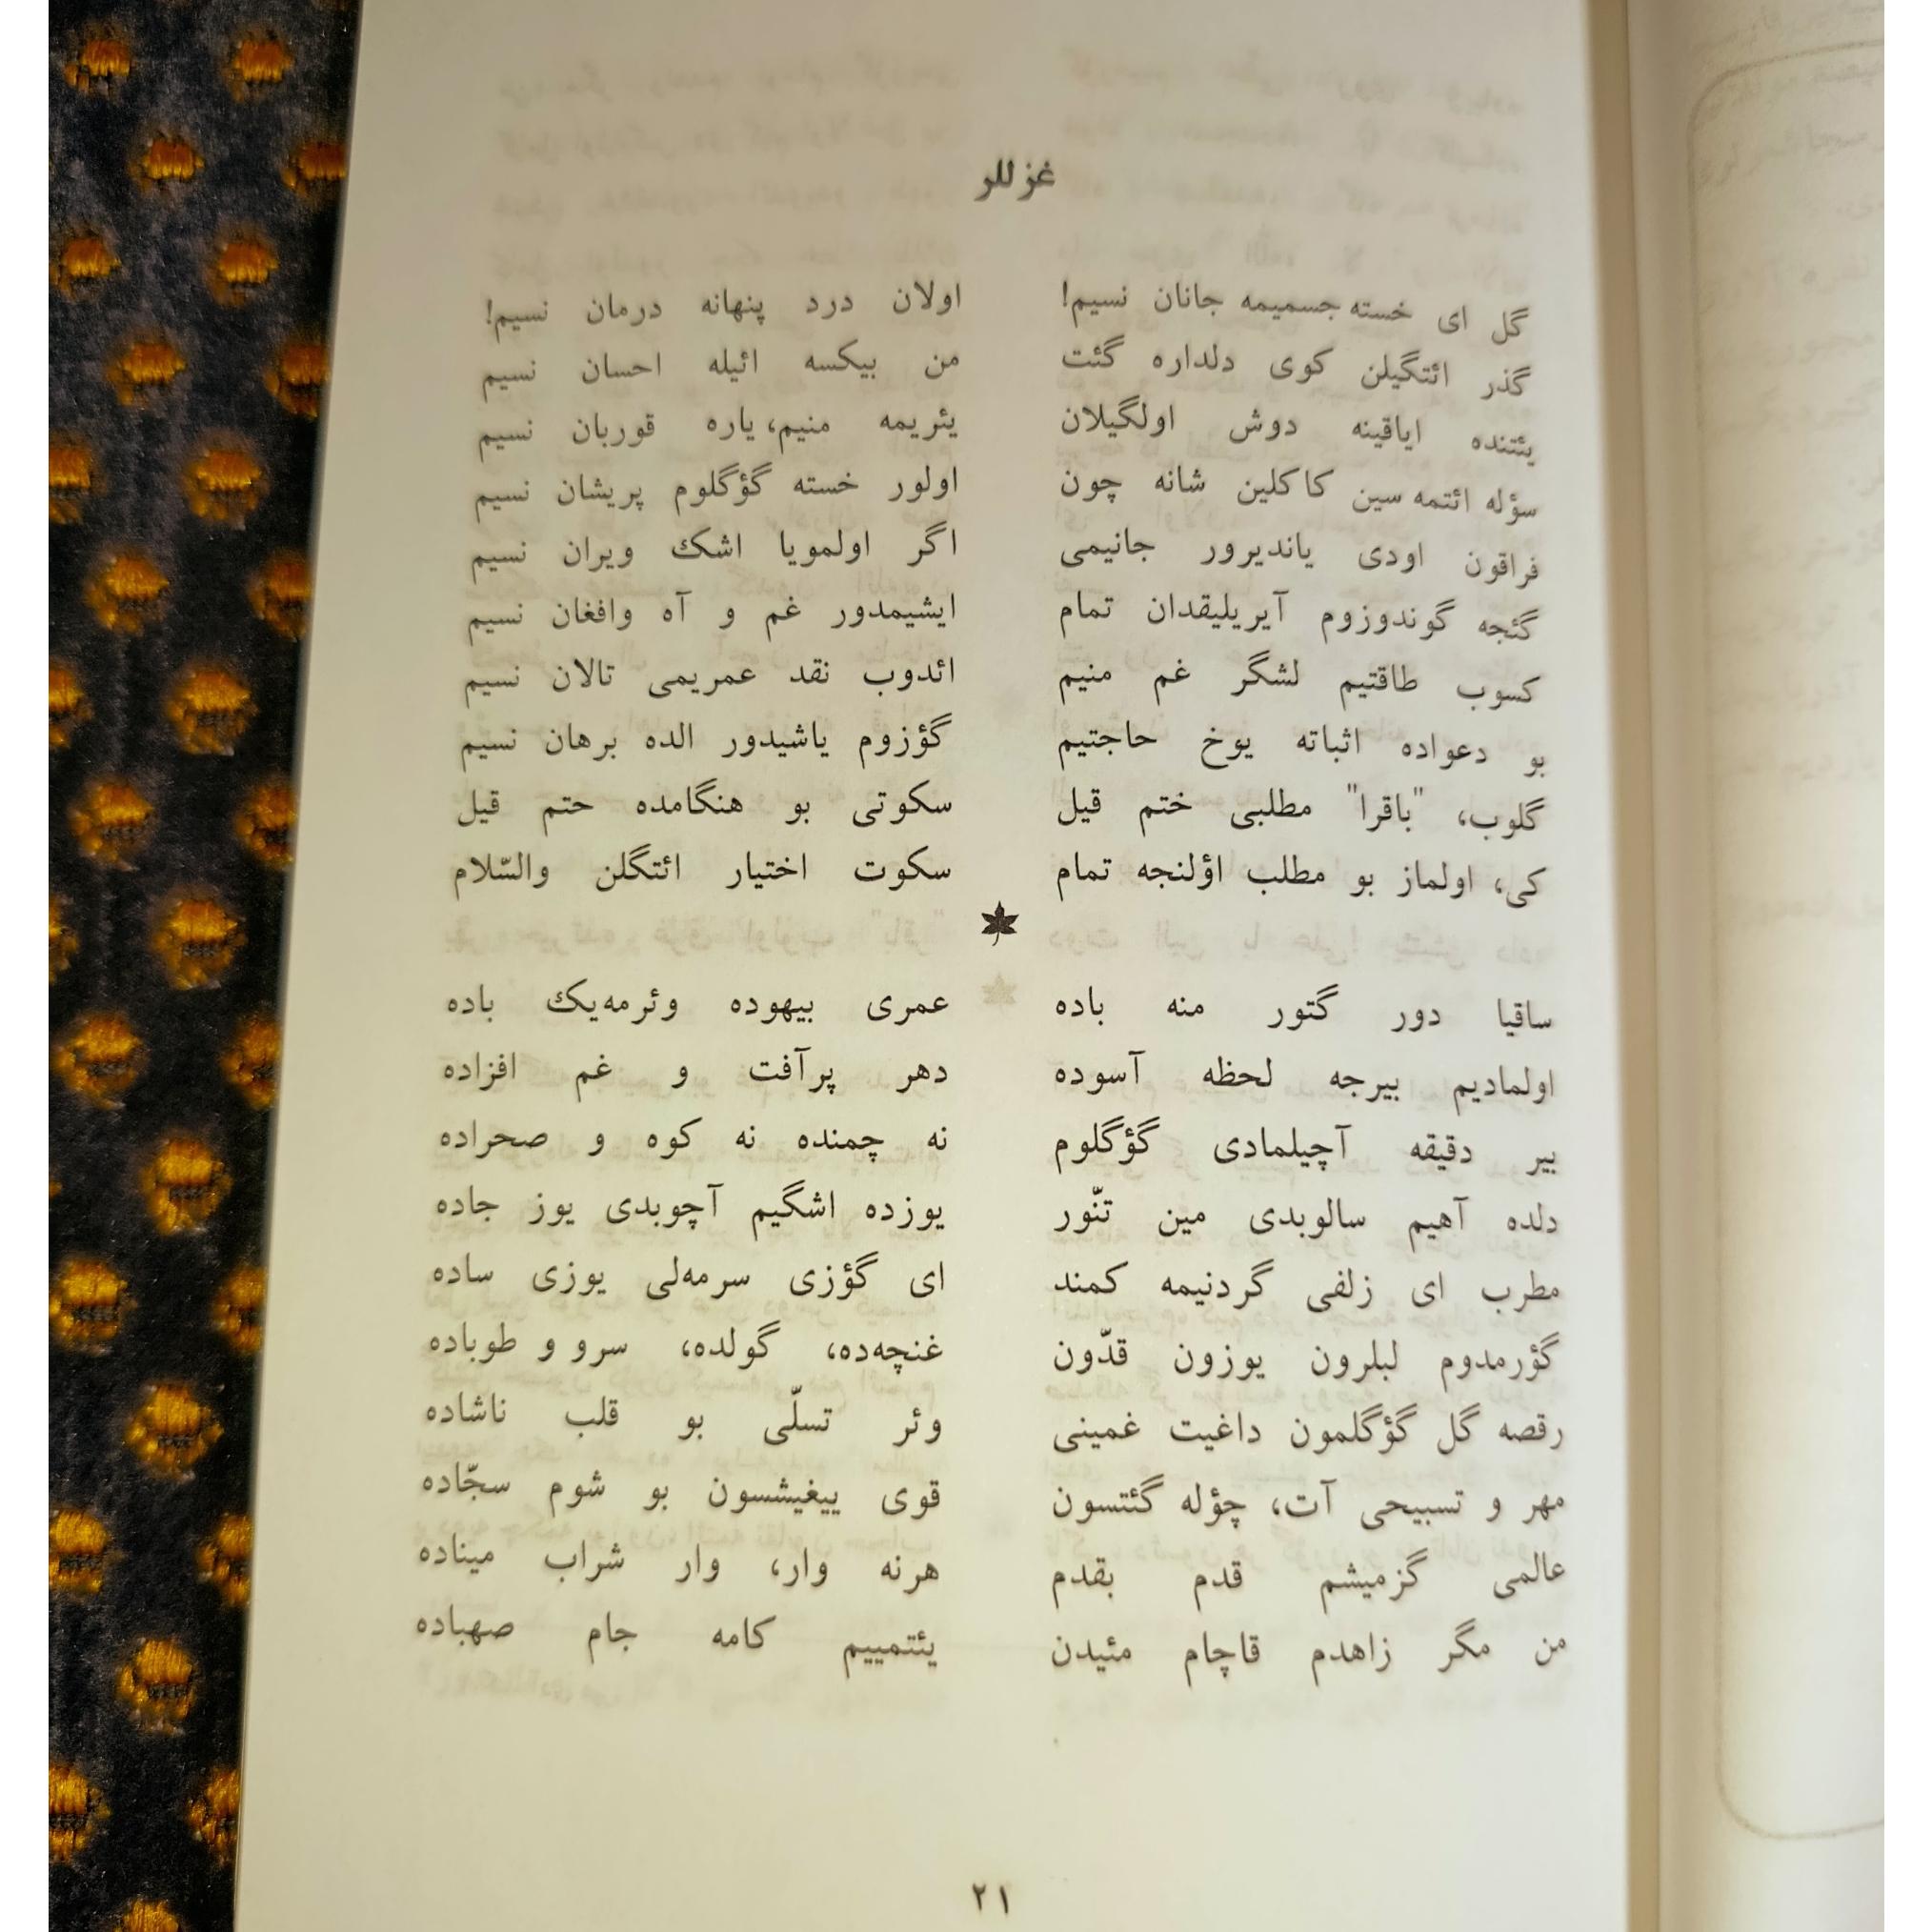 غزللر
گل ای خسته جسمیمه جانان نسیم! اولان درد پنهانه درمان نسیم!
گذر ائتگیلن کوی دلداره گئت من بیکسه ائیله احسان نسیم
یئتنده ایاقینه دوش اولگیلان یئریمه منیم، یاره قوربان نسیم
سؤله ائتمه سین کاکلین شانه چون اولور خسته گؤگلوم پریشان نسیم
فراقون اودی یاندیرور جانیمی اگر اولمویا اشک ویران نسیم
گئجه گوندوزوم آیریلیقدان تمام ایشیمدور غم و آه وافغان نسیم
کسوب طاقتیم لشگر غم منیم ائدوب نقد عمریمی تالان نسیم
بو دعواده اثباته یوخ حاجتیم گؤزوم یاشیدور الده برهان نسیم
گلوب، "باقرا" مطلبی ختم قیل سکوتی بو هنگامده حتم قیل
کی، اولماز بو مطلب اؤلنجه تمام سکوت اختیار ائتگلن والسّلام
ساقیا دور گتور منه باده عمری بیهوده وئرمه‌یک باده
اولمادیم بیرجه لحظه آسوده دهر پرآفت و غم افزاده
بیر دقیقه آچیلمادی گؤگلوم نه چمنده نه کوه و صحراده
دلده آهیم سالوبدی مین تنّور یوزده اشگیم آچوبدی یوز جاده
مطرب ای زلفی گردنیمه کمند ای گؤزی سرمه‌لی یوزی ساده
گؤرمدوم لبلرون یوزون قدّون غنچه‌ده، گولده، سرو و طوباده
رقصه گل گؤگلمون داغیت غمینی وئر تسلّی بو قلب ناشاده
مهر و تسبیحی آت، چؤله گئتسون قوی ییغیشسون بو شوم سجّاده
عالمی گزمیشم قدم بقدم هرنه وار، وار شراب میناده
من مگر زاهدم قاچام مئیدن یئتمییم کامه جام صهباده
۲۱